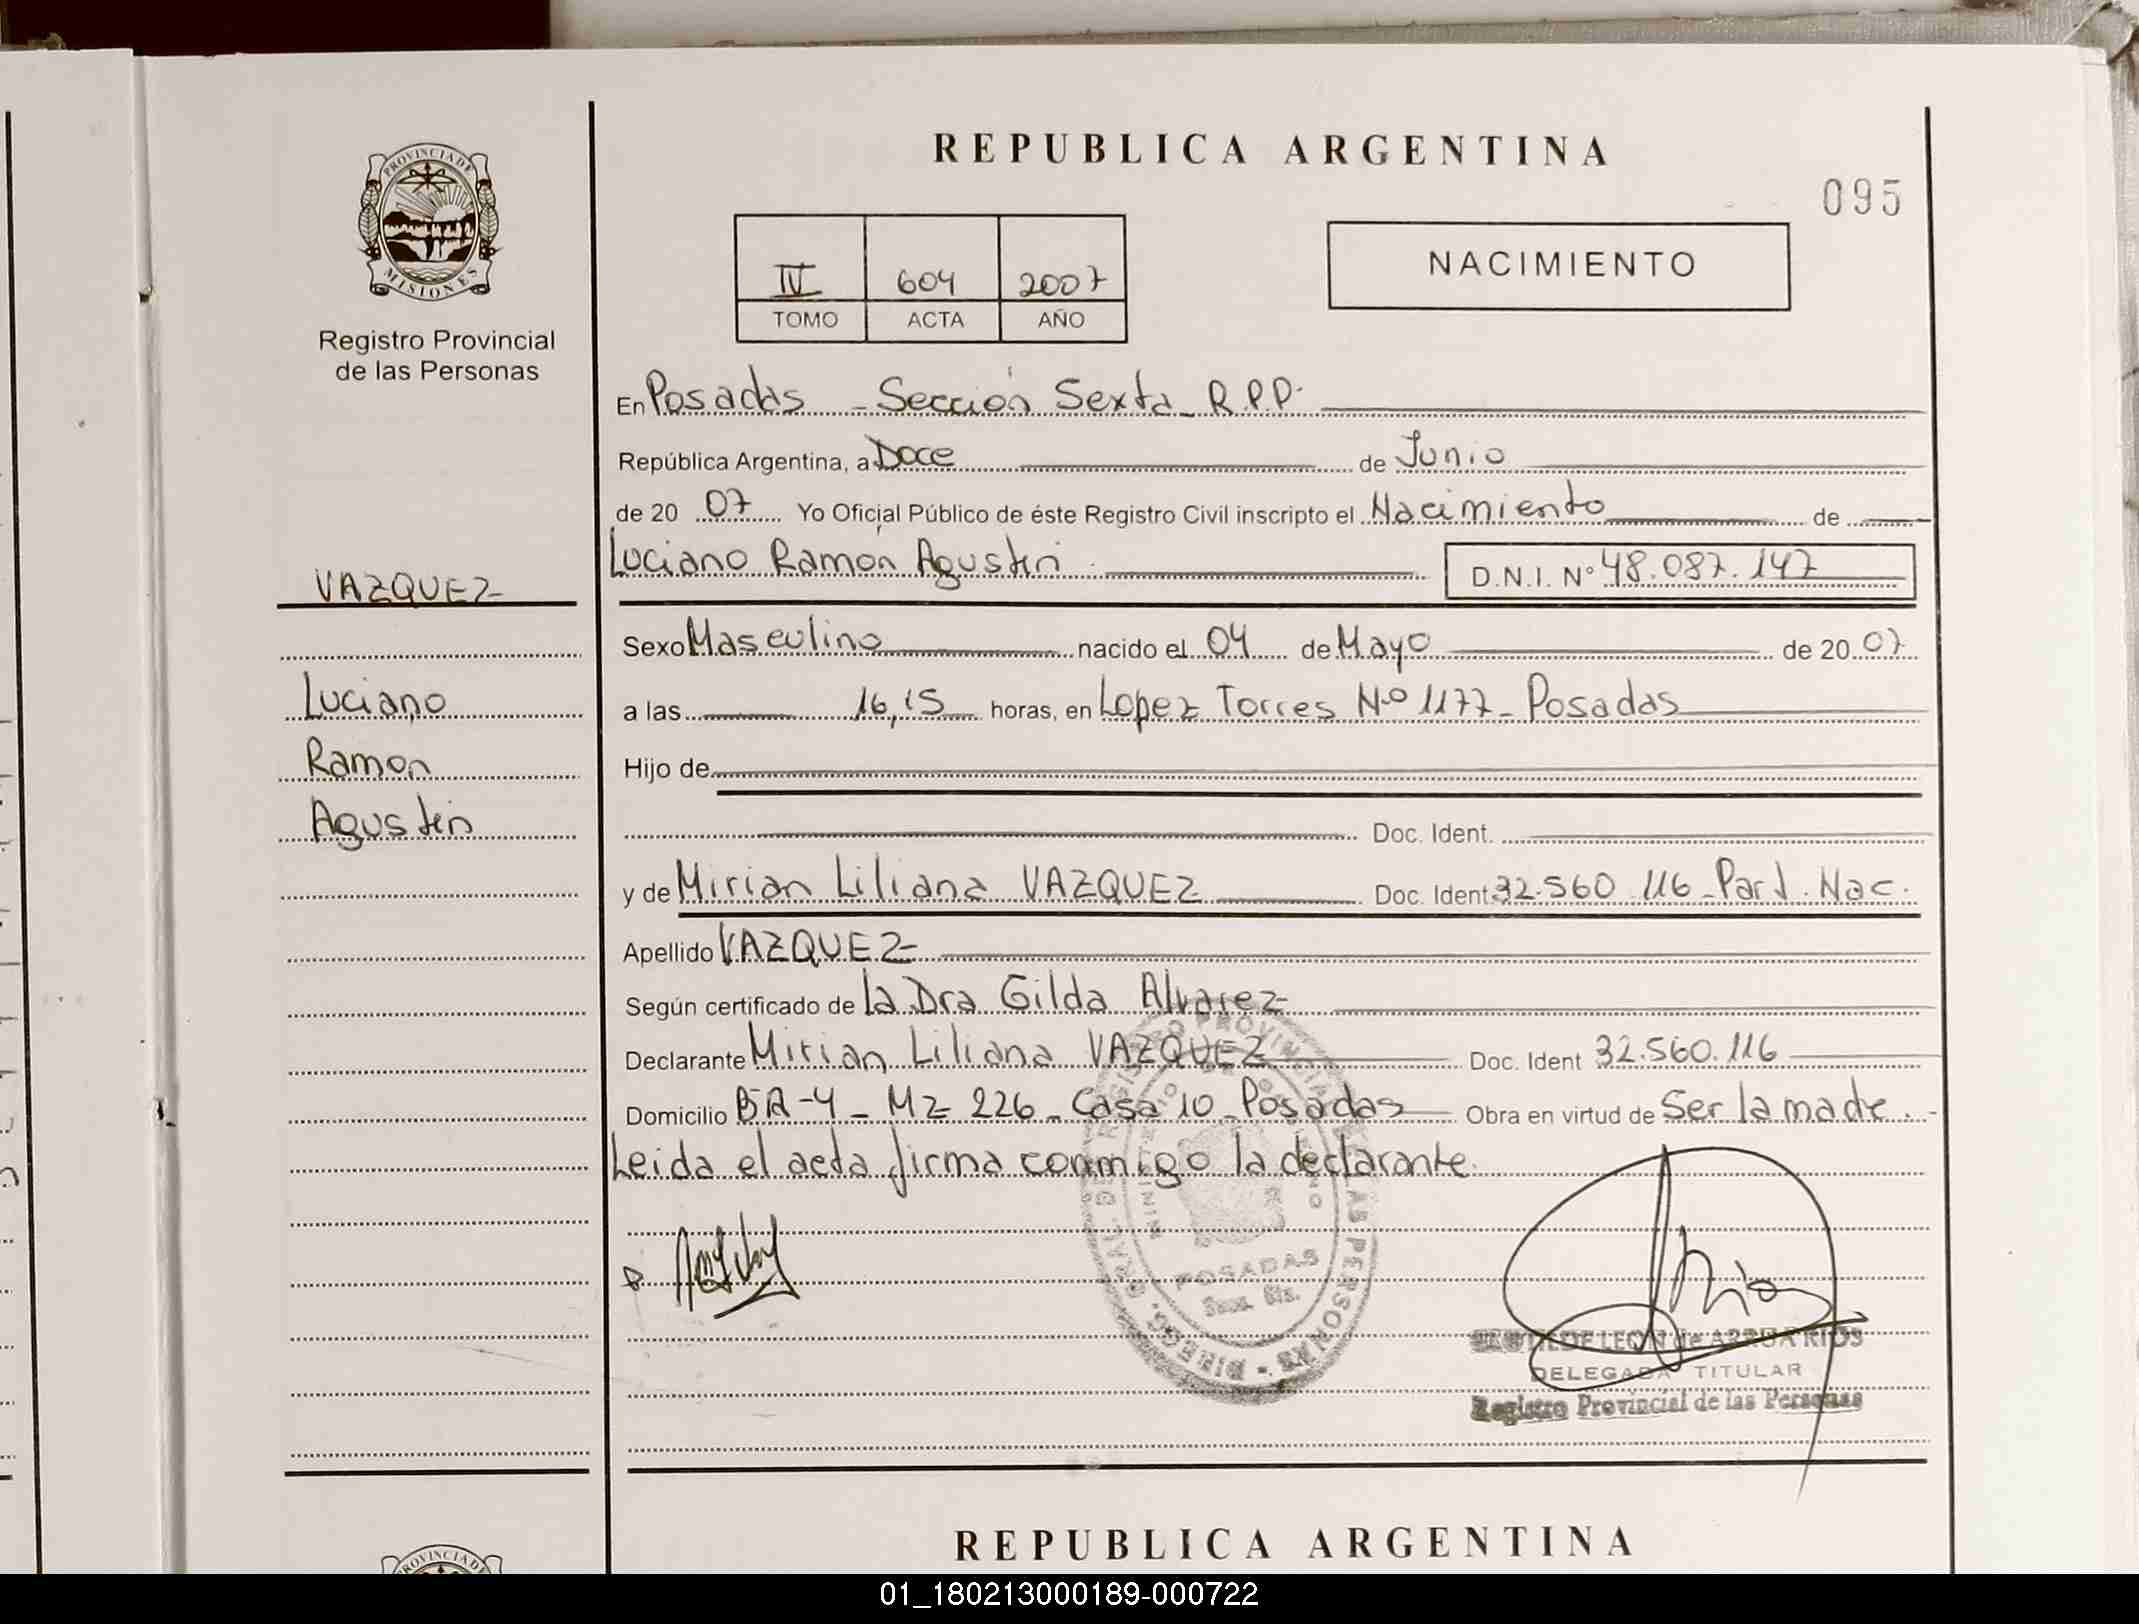 REPUBLICA ARGENTINA
095
PROVINCIA DE
MISIONES
Registro Provincial
de las Personas
IV 604 2007
TOMO ACTA AÑO
NACIMIENTO
En Posadas - Sección Sexta - R.P.P.
República Argentina, a Doce de Junio
de 20 07 Yo Oficial Público de éste Registro Civil inscripto el Nacimiento de
Luciano Ramon Agustin D.N.I. Nº 48.087.147
VAZQUEZ
Luciano
Ramon
Agustin
Sexo Masculino nacido el 04 de Mayo de 20 07
a las 16,15 horas, en Lopez Torres N.º 1177 - Posadas
Hijo de
Doc. Ident.
y de Mirian Liliana VAZQUEZ Doc. Ident 32.560.116 - Part. Nac.
Apellido VAZQUEZ
Según certificado de la Dra Gilda Alvarez
Declarante Mirian Liliana VAZQUEZ Doc. Ident 32.560.116
Domicilio BA-4 - Mz 226 - Casa 10 - Posadas Obra en virtud de Ser la madre.
Leida el acta firma conmigo la declarante.
POSADAS
DE LEON de ARRUA RIOS
DELEGADA TITULAR
Registro Provincial de las Personas
REPUBLICA ARGENTINA
PROVINCIA DE
01_180213000189-000722